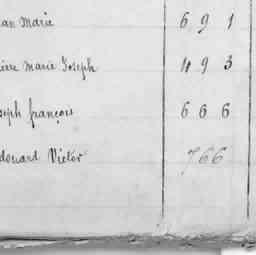 an Marie 6 9 1
ierre Marie Joseph 4 9 3
seph françois 6 6 6
douard Victor 766